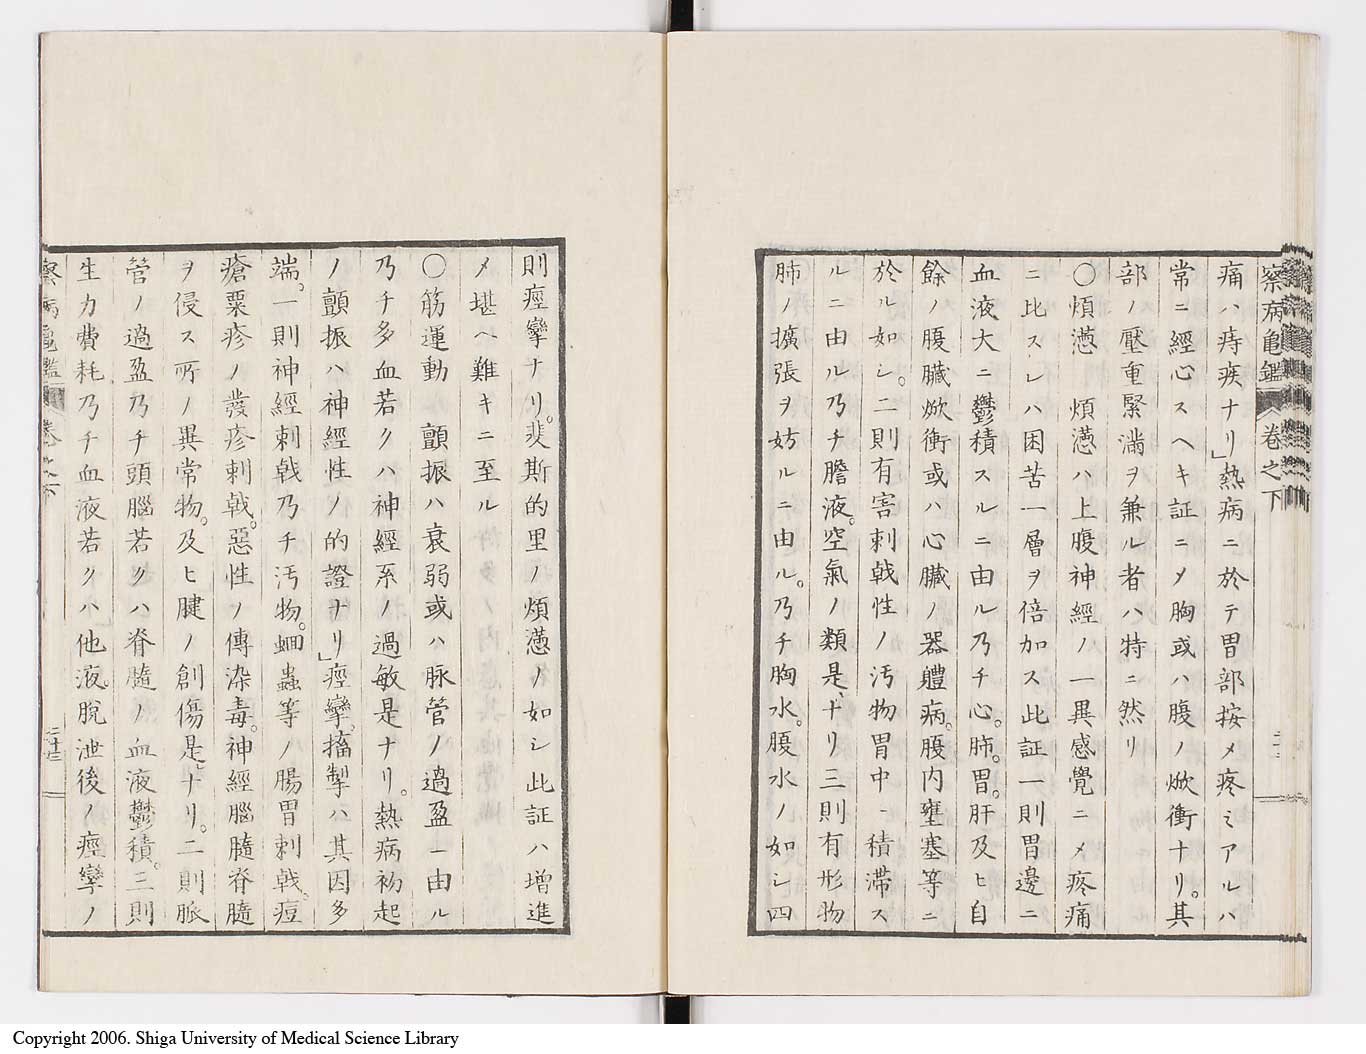 察病亀鑑 卷之下
痛ハ痔疾ナリ」熱病ニ於テ胃部按メ疼ミアルハ
常ニ經心スヘキ証ニメ胸或ハ腹ノ焮衝ナリ。其
部ノ壓重緊滿ヲ兼ル者ハ特ニ然リ
〇煩懣 煩懣ハ上腹神經ノ一異感覺ニメ疼痛
ニ比スレハ困苦一層ヲ倍加ス此証一則胃邊ニ
血液大ニ鬱積スルニ由ル乃チ心。肺。胃。肝及ヒ自
餘ノ腹臓焮衝或ハ心臓ノ器軆病。腹内壅塞等ニ
於ル如シ。二則有害刺戟性ノ汚物胃中ニ積滞ス
ルニ由ル乃チ膽液。空氣ノ類是ナリ三則有形物
肺ノ擴張ヲ妨ルニ由ル。乃チ胸水。腹水ノ如シ四
則痙攣ナリ。斐斯的里ノ煩懣ノ如シ此証ハ增進
メ堪ヘ難キニ至ル
〇筋運動 顫振ハ衰弱或ハ脉管ノ過盈ニ由ル
乃チ多血若クハ神經系ノ過敏是ナリ。熱病初起
ノ顫振ハ神經性ノ的證ナリ」痙攣。搐掣ハ其因多
端。一則神經刺戟乃チ汚物。蛔蟲等ノ腸胃刺戟。痘
瘡粟疹ノ發疹刺戟。惡性ノ傳染毒。神經腦髓脊髓
ヲ侵ス所ノ異常物。及ヒ腱ノ創傷是ナリ。二則脈
管ノ過盈乃チ頭腦若クハ脊髓ノ血液鬱積。三則
生力費耗乃チ血液若クハ他液。脫泄後ノ痙攣ノ
察病亀鑑 卷之下
二十三
Copyright 2006. Shiga University of Medical Science Library